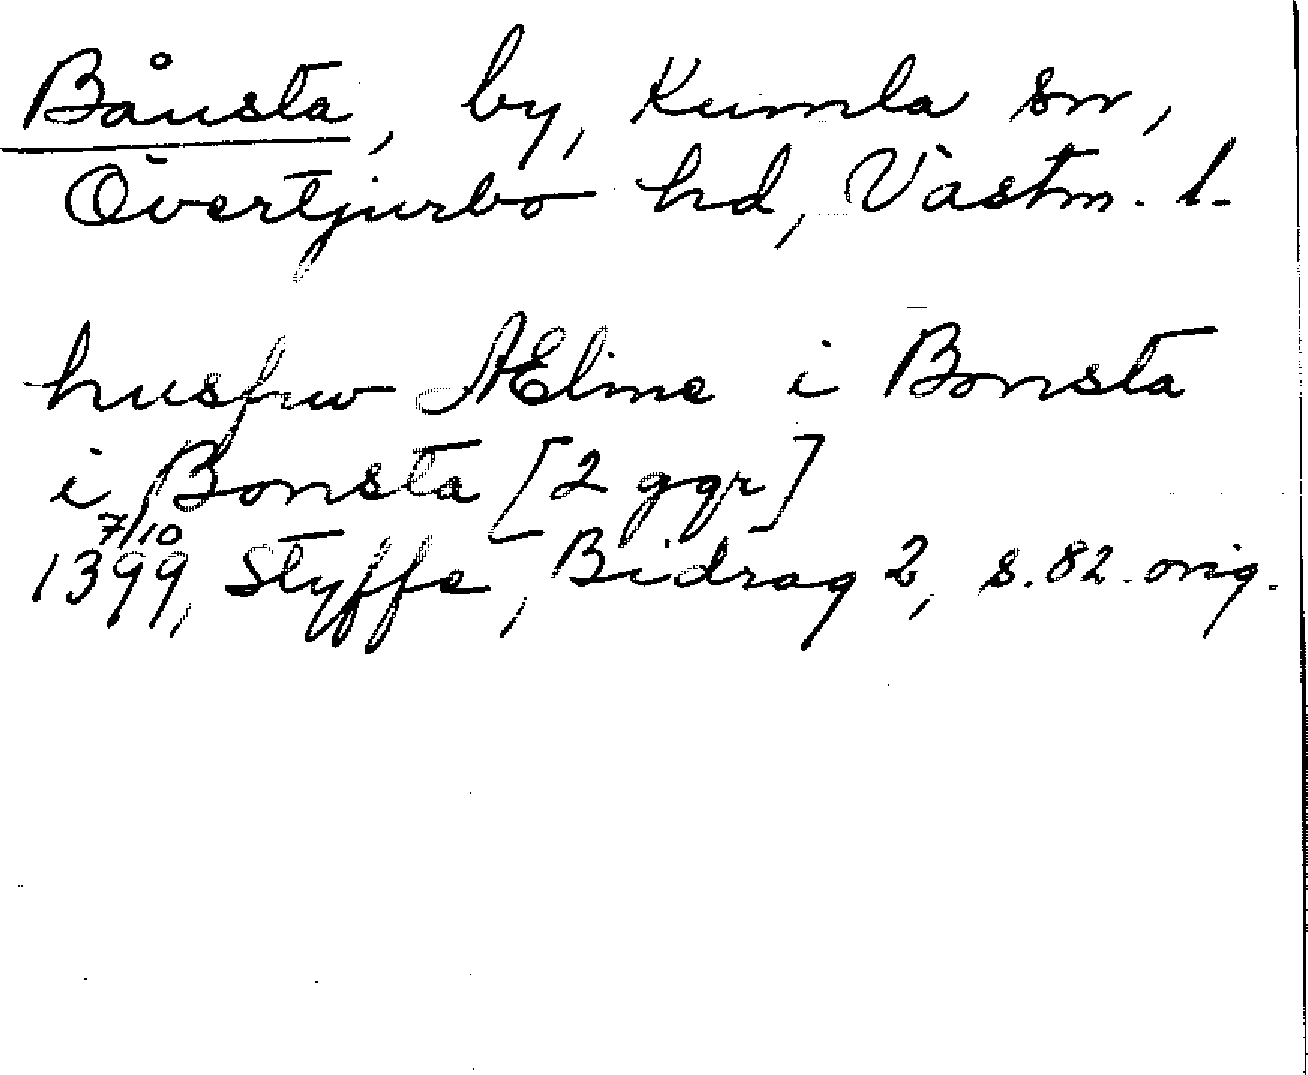 Bånsta, by, Kumla sn,
Övertjurbo hd, Västm. l.
husfrw Ælma i Bonsta
i Bonsta [2 ggr]
7/10
1399, Styffe, Bidrag 2, s. 82. orig.